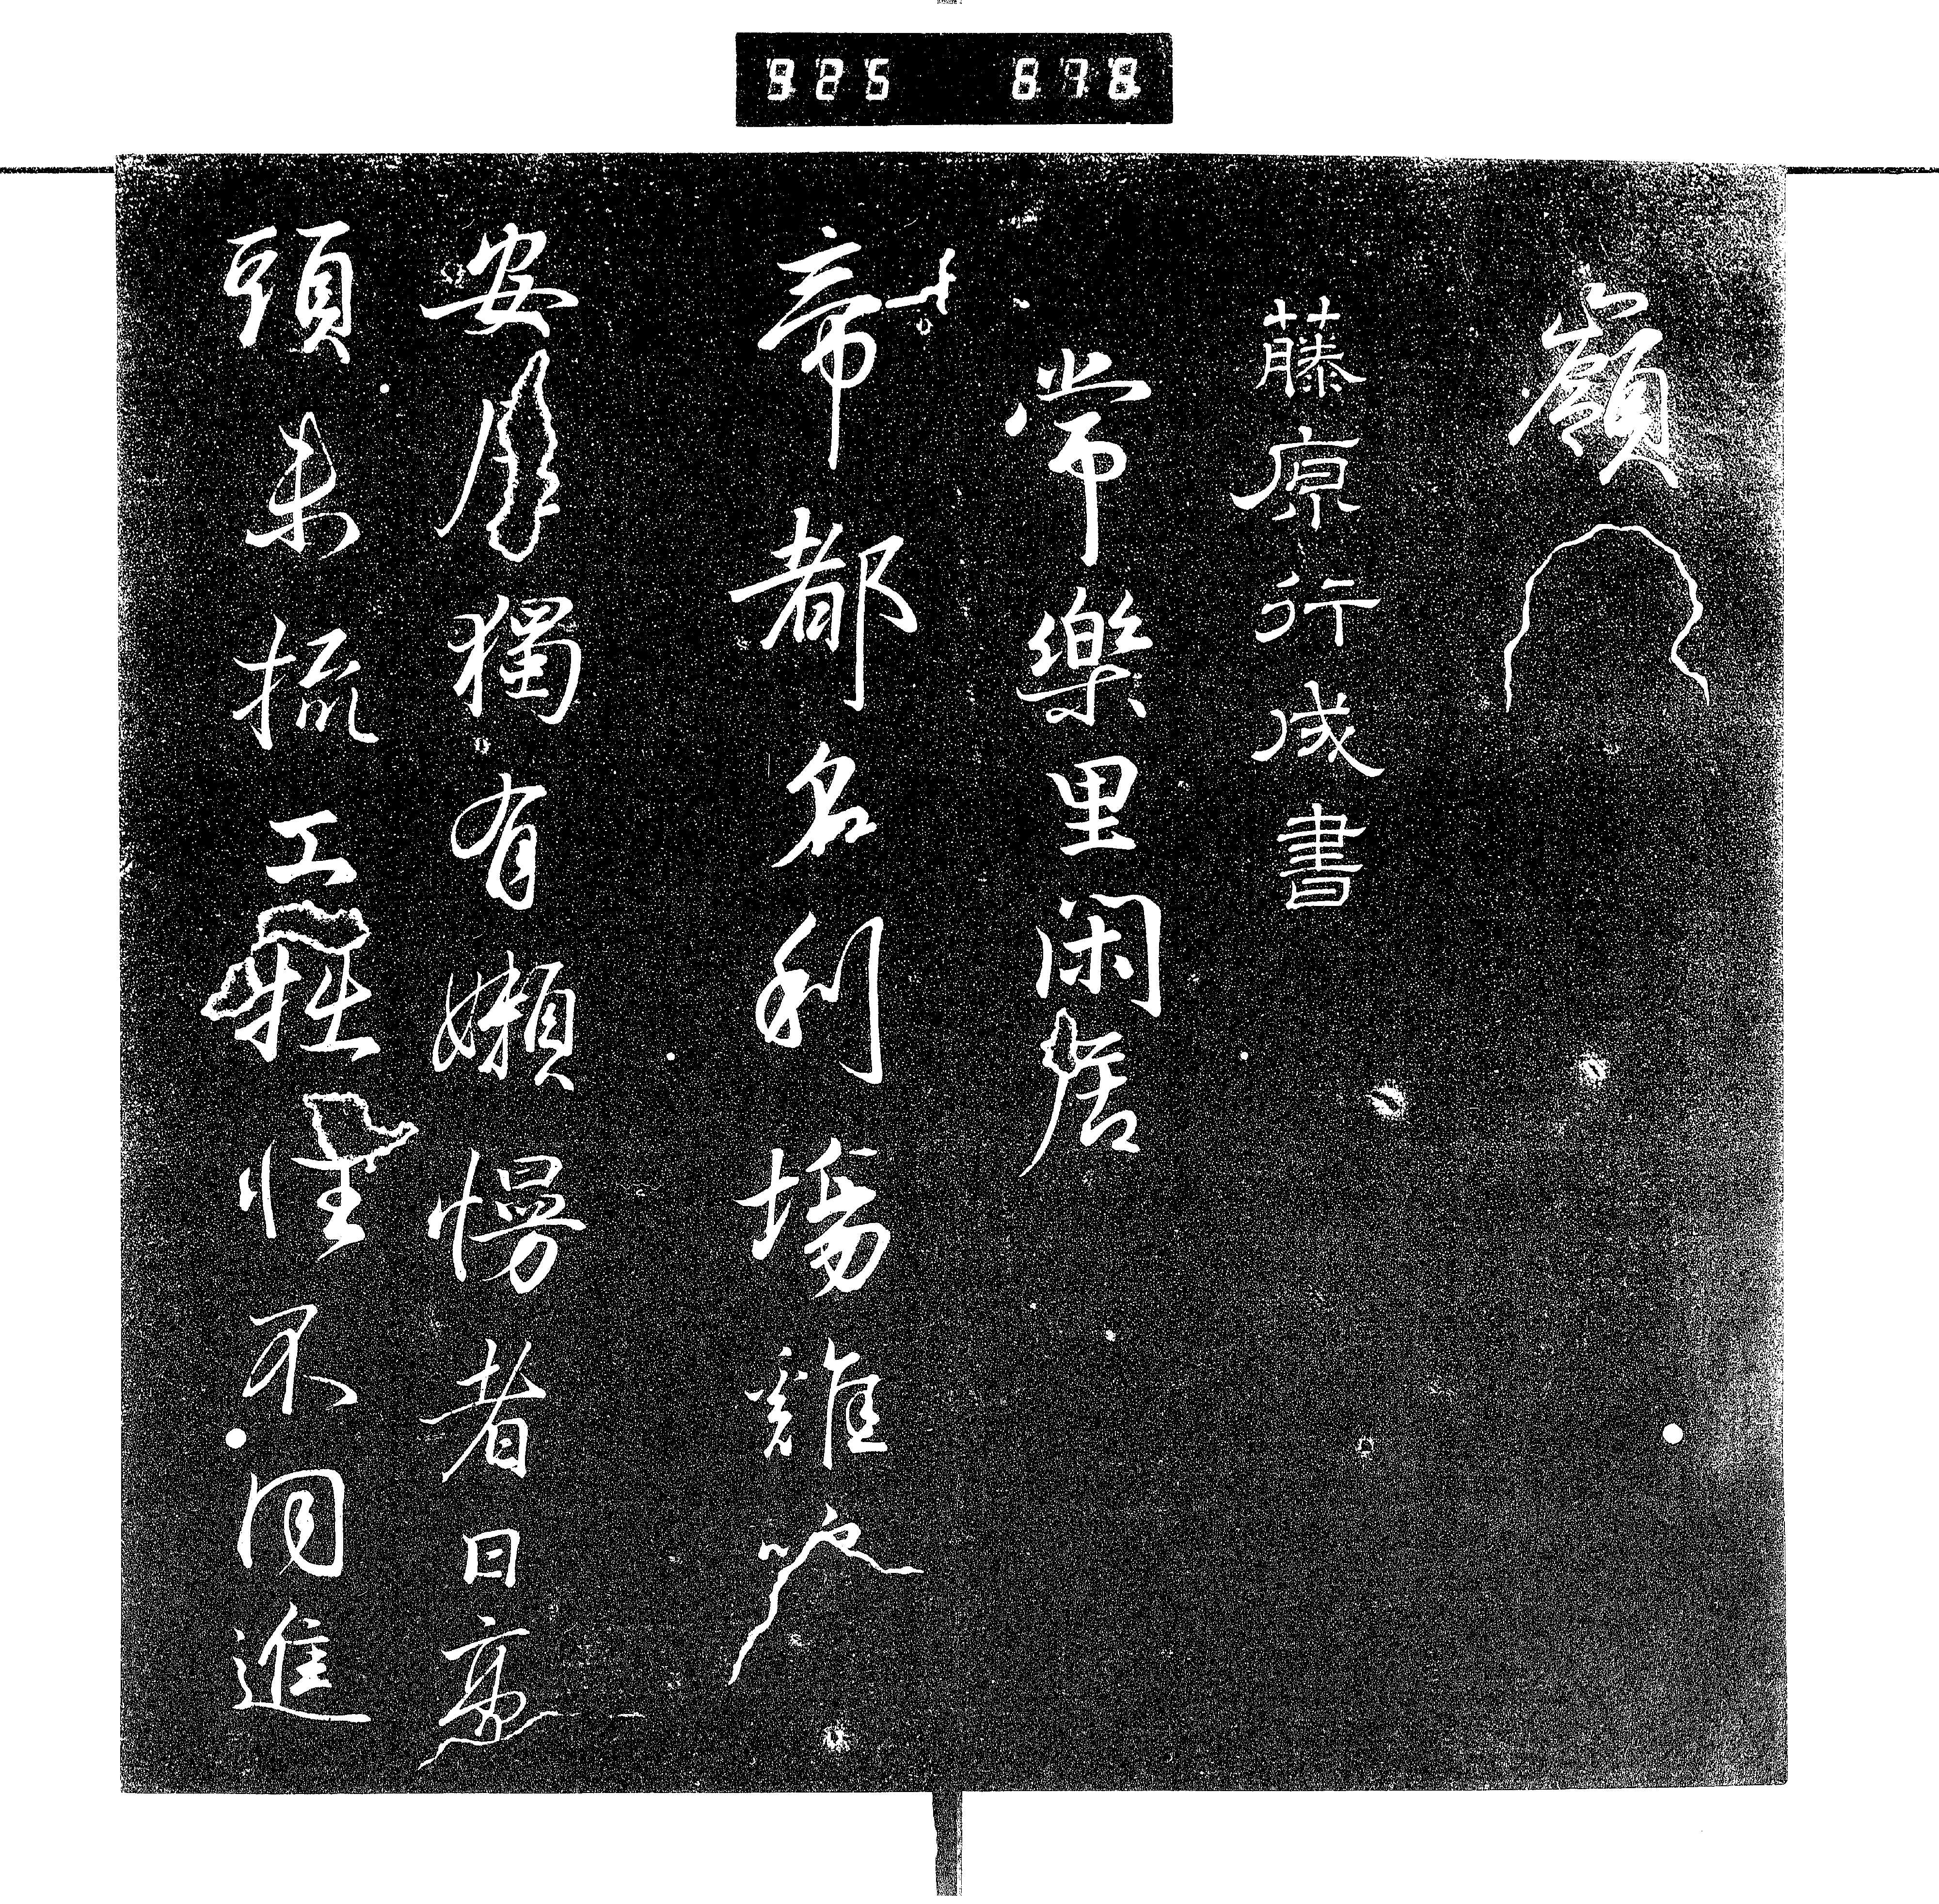 925 678
嶺
藤原行成書
常樂里閑居
帝都名利場雞
安居獨有嬾慢者日高
頭未梳工拙性不同進